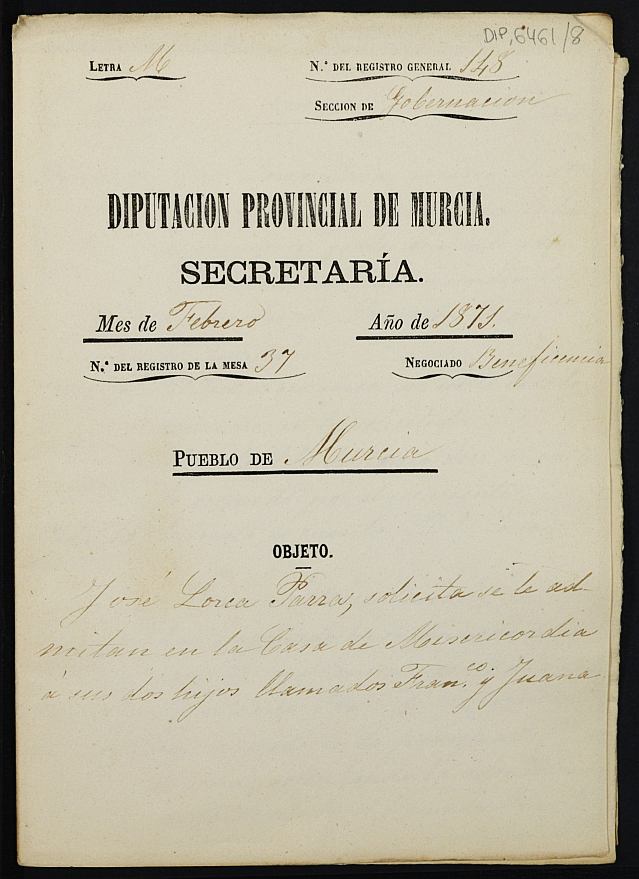 DIP, 6461/8
LETRA M
N.º DEL REGISTRO GENERAL 148
SECCION DE Gobernacion
DIPUTACION PROVINCIAL DE MURCIA.
SECRETARÍA.
Mes de Febrero Año de 1871.
N.º DEL REGISTRO DE LA MESA 37 NEGOCIADO Beneficencia
PUEBLO DE Murcia
OBJETO.
José Lorca Parra, solicita se le ad-
mitan en la Casa de Misericordia
á sus dos hijos llamados Fran.co y Juana